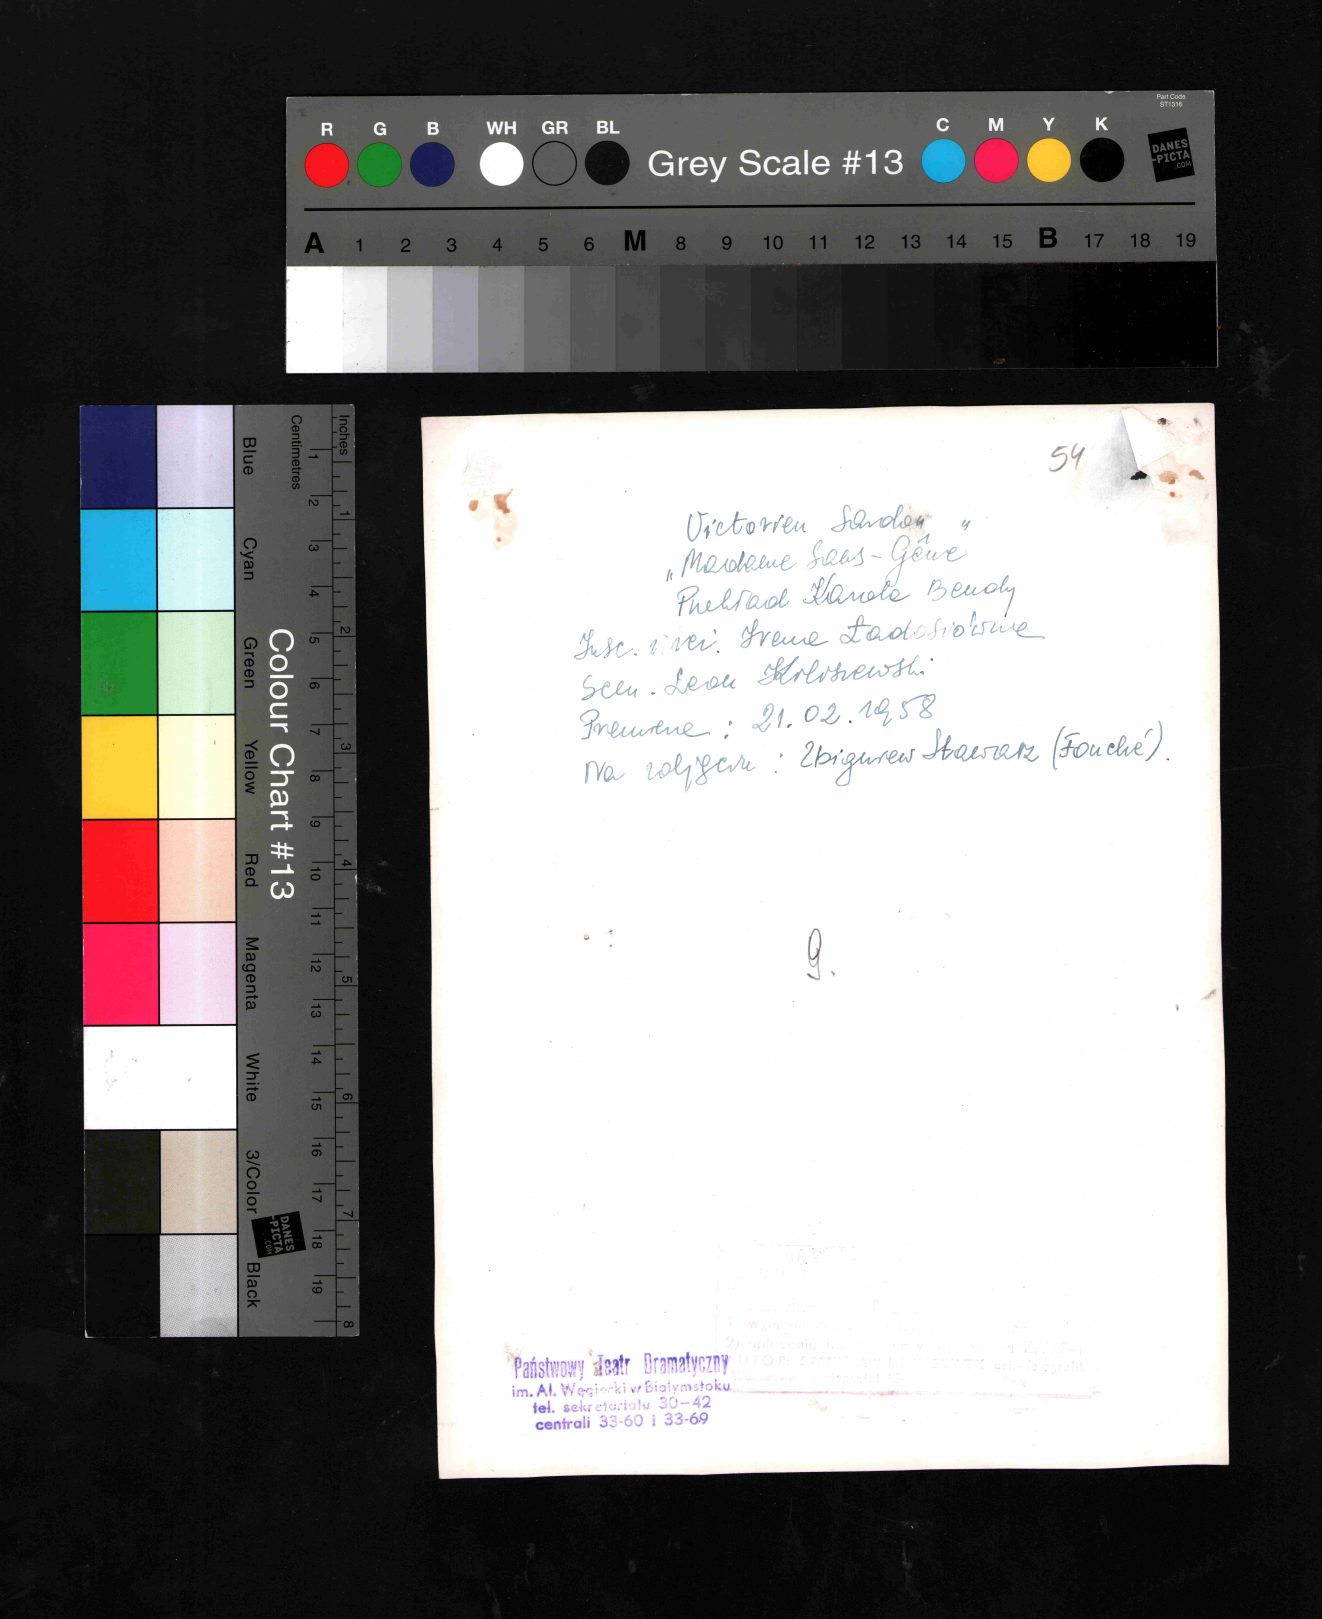 Part Code
ST1316
R G B WH GR BL Grey Scale #13 C M Y K
DANES
-PICTA
.COM
A 1 2 3 4 5 6 M 8 9 10 11 12 13 14 15 B 17 18 19
Colour Chart #13
Blue
Cyan
Green
Yellow
Red
Magenta
White
3/Color
Black
Centimetres
1 2 3 4 5 6 7 8 9 10 11 12 13 14 15 16 17 18 19
Inches
1 2 3 4 5 6 7 8
DANES
-PICTA
.COM
54
Victorien Sardou "
„Madame Sans-Gêne
Przekład Karola Bendy
Insc. i reż. Irena Ładosiówna
Scen. Leon
Premiera : 21.02.1958
Na zdjęciu : Zbigniew Stawarz (Fouché).
9.
Państwowy Teatr Dramatyczny
im. Al. Węgierki w Białymstoku
tel. sekretariatu 30-42
centrali 33-60 i 33-69